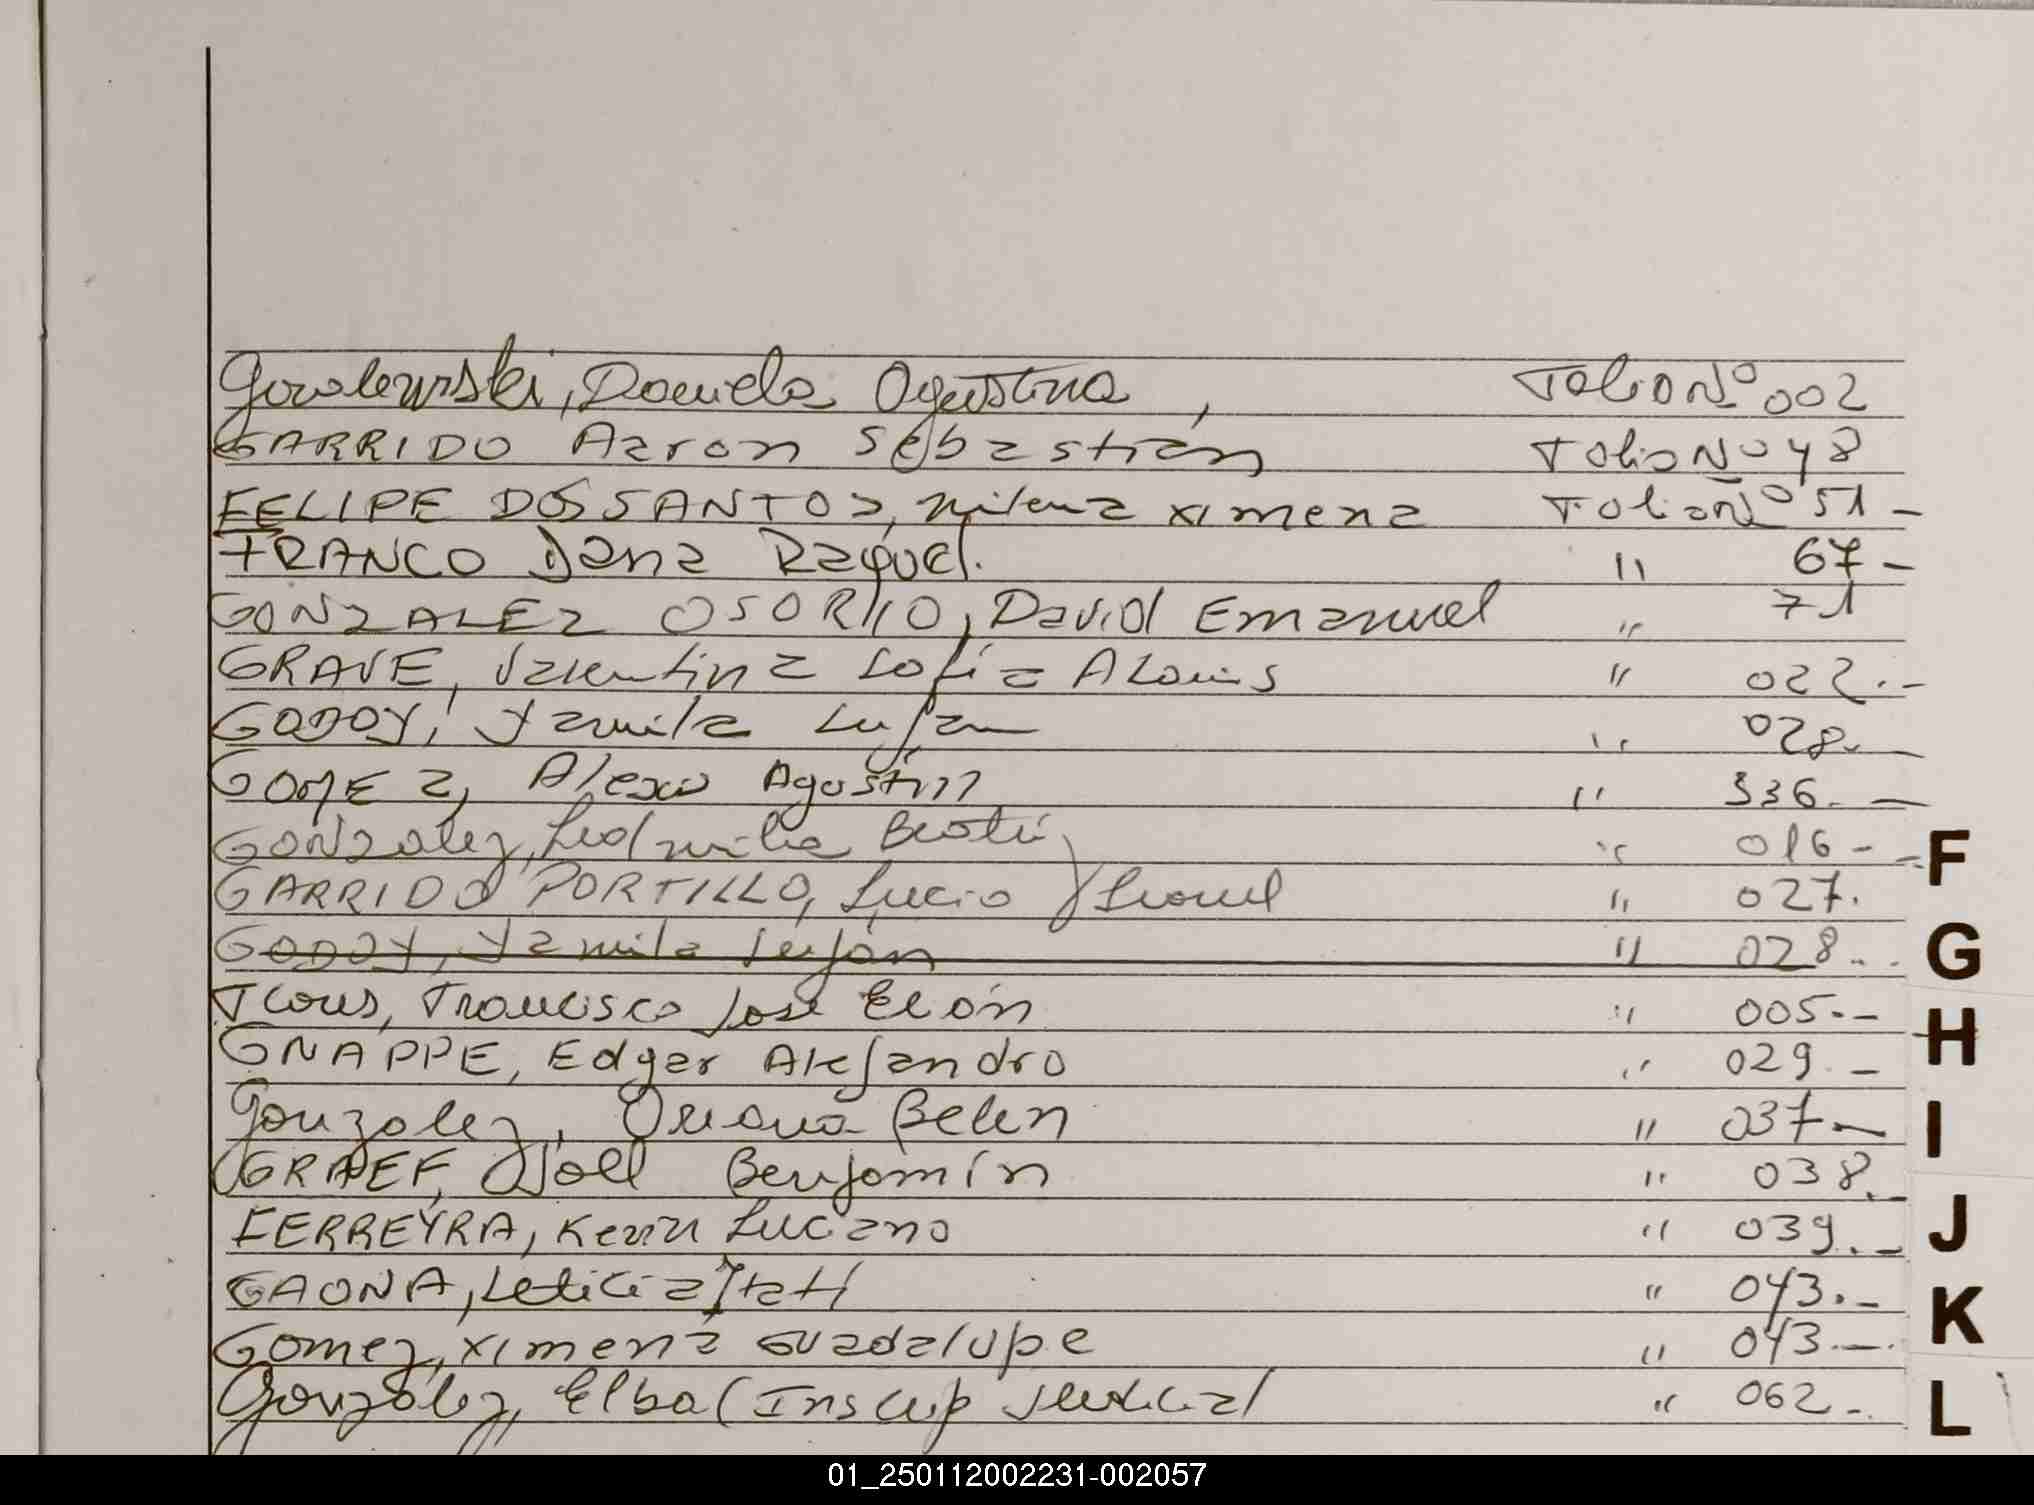 Gowlewski, Daniela Agustina, Folio Nº 002
GARRIDO Aaron Sebastián Folio Nº 48
FELIPE DOS SANTOS, Milena Ximena Folio Nº 51 -
FRANCO Dana Raquel. " 67 -
GONZALEZ OSORIIO, David Emanuel " 71
GRAVE, Valentina Sofia " 022.-
GODOY, Yamila Lujan " 028.-
GOMEZ, Alexis Agustin " 336. -
GONZalez, Ludmila " 016 -
GARRIDO PORTILLO, Lucio Leonel " 027.
GODOY, Yamila Luján " 028..
Francisco José " 005.-
GNAPPE, Edgar Alejandro " 029. -
Gonzalez, Oriana Belen " 037 -
GRAEF, Joel Benjamín " 038.-
FERREYRA, Kevin Luciano " 039.-
GAONA, Leticia Itatí " 043.-
Gomez, Ximena Guadalupe " 043.-
González, Elba (Inscrip Judicial " 062 -
F
G
H
I
J
K
L
01_250112002231-002057